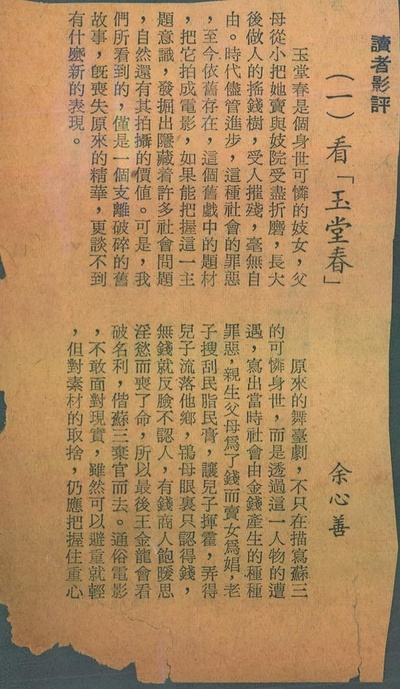 讀者影評
（一）看「玉堂春」
余心善
玉堂春是個身世可憐的妓女，父
母從小把她賣與妓院受盡折磨，長大
後做人的搖錢樹，受人摧殘，毫無自
由。時代儘管進步，這種社會的罪惡
，至今依舊存在，這個舊戲中的題材
，把它拍成電影，如果能把握這一主
題意識，發掘出隱藏着許多社會問題
，自然還有其拍攝的價值。可是，我
們所看到的，僅是一個支離破碎的舊
故事，既喪失原來的精華，更談不到
有什麼新的表現。
原來的舞臺劇，不只在描寫蘇三
的可憐身世，而是透過這一人物的遭
遇，寫出當時社會由金錢產生的種種
罪惡，親生父母爲了錢而賣女爲娼，老
子搜刮民脂民膏，讓兒子揮霍，弄得
兒子流落他鄉，鴇母眼裏只認得錢，
無錢就反臉不認人，有錢商人飽暖思
淫慾而喪了命，所以最後王金龍會看
破名利，偕蘇三棄官而去。通俗電影
，不敢面對現實，雖然可以避重就輕
，但對素材的取捨，仍應把握住重心